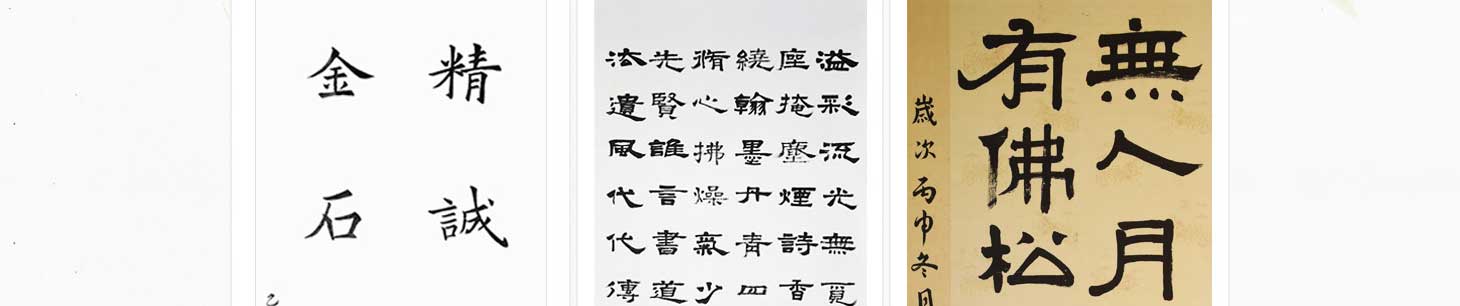 精誠
金石
溢彩流光無覓
座掩塵煙詩香
繞翰墨丹青四
脩心拂燥氣少
先賢誰言書道
法遺風代代傳
無人月
有佛松
歲次丙申冬